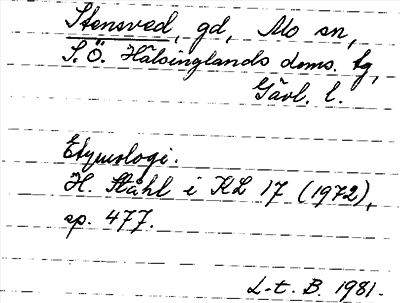 Stensved, gd, Mo sn,
S. Ö. Hälsinglands doms. tg,
Gävl. l.
Etymologi.
H. Ståhl i KL 17 (1972),
sp. 477.
L-t. B. 1981.